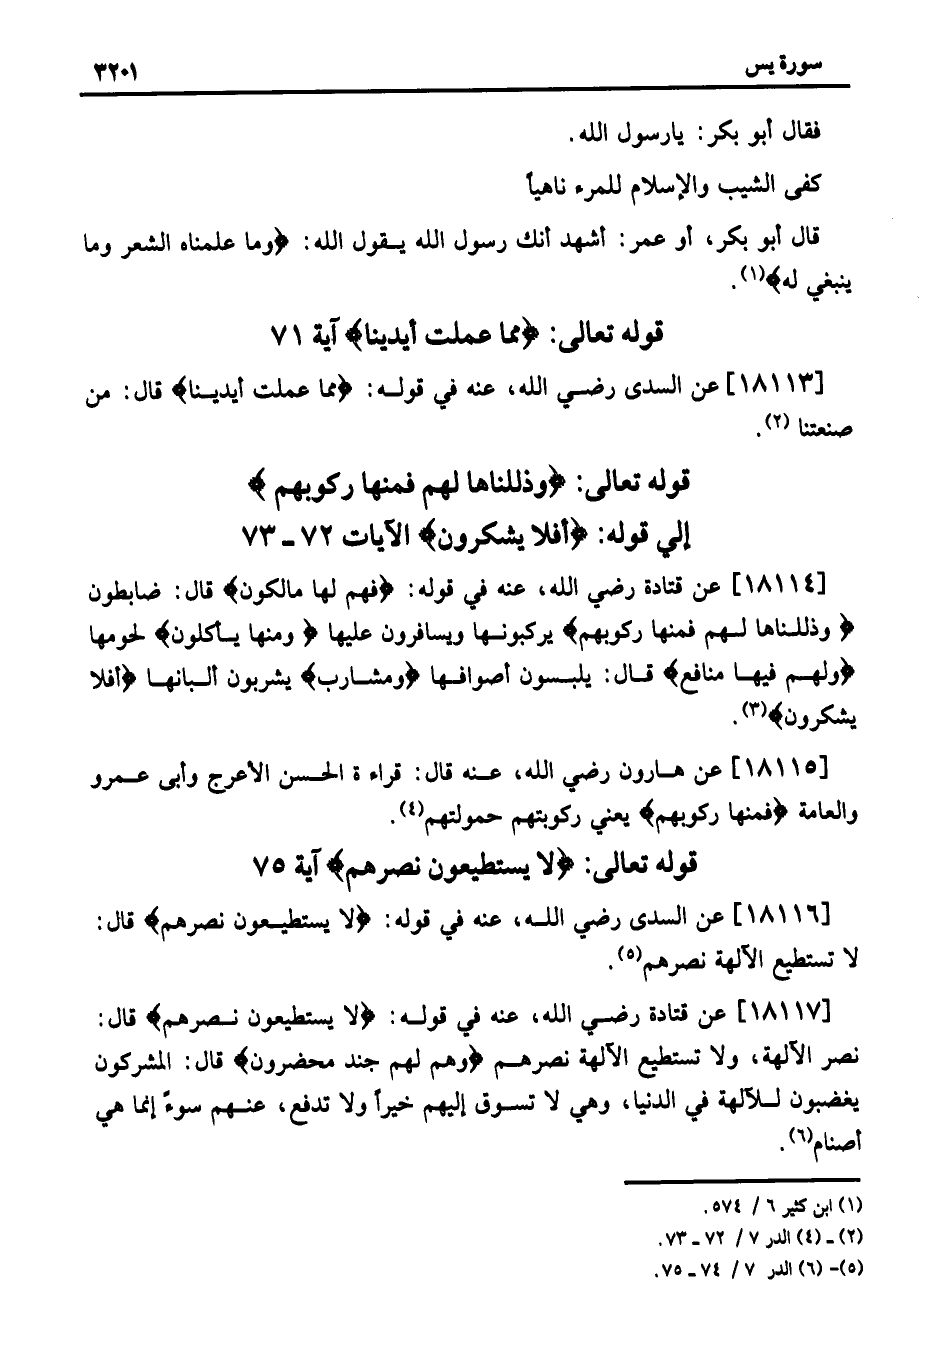 سورة يس
٣٢٠١
فقال أبو بكر: يارسول الله.
كفى الشيب والإسلام للمرء ناهياً
قال أبو بكر، أو عمر: أشهد أنك رسول الله يـقول الله: ﴿وما علمناه الشعر وما
ينبغي له﴾(١).
قوله تعالى: ﴿مما عملت أيدينا﴾ آية ٧١
[١٨١١٣] عن السدى رضـي الله، عنه في قولـه: ﴿مما عملت أيديـنا﴾ قال: من
صنعتنا (٢).
قوله تعالى: ﴿وذللناها لهم فمنها ركوبهم ﴾
إلي قوله: ﴿أفلا يشكرون﴾ الآيات ٧٢ ـ ٧٣
[١٨١١٤] عن قتادة رضي الله، عنه في قوله: ﴿فهم لها مالكون﴾ قال: ضابطون
﴿ وذللـناها لـهم فمنها ركوبهم﴾ يركبونـها ويسافرون عليها ﴿ ومنها يـأكلون﴾ لحومها
﴿ولهـم فيهـا منافع﴾ قـال: يلبـسون أصوافـها ﴿ومشـارب﴾ يشربون ألبـانهـا ﴿أفلا
يشكرون﴾(٣).
[١٨١١٥] عن هـارون رضي الله، عـنه قال: قراء ة الحـسن الأعرج وأبى عـمرو
والعامة ﴿فمنها ركوبهم﴾ يعني ركوبتهم حمولتهم(٤).
قوله تعالى: ﴿لا يستطيعون نصرهم﴾ آية ٧٥
[١٨١١٦] عن السدى رضي اللـه، عنه في قوله: ﴿لا يستطيـعون نصرهم﴾ قال:
لا تستطيع الآلهة نصرهم(٥).
[١٨١١٧] عن قتادة رضـي الله، عنه في قولـه: ﴿لا يستطيعون نـصرهم﴾ قال:
نصر الآلهة، ولا تستطيع الآلهة نصرهـم ﴿وهم لهم جند محضرون﴾ قال: المشركون
يغضبون لـلآلهة في الدنيا، وهي لا تسـوق إليهم خيراً ولا تدفع، عنـهم سوءً إنما هي
أصنام(٦).
(١) ابن كثير ٦ / ٥٧٤.
(٢) ـ (٤) الدر ٧ / ٧٢ ـ ٧٣.
(٥)- (٦) الدر ٧ / ٧٤ ـ ٧٥.